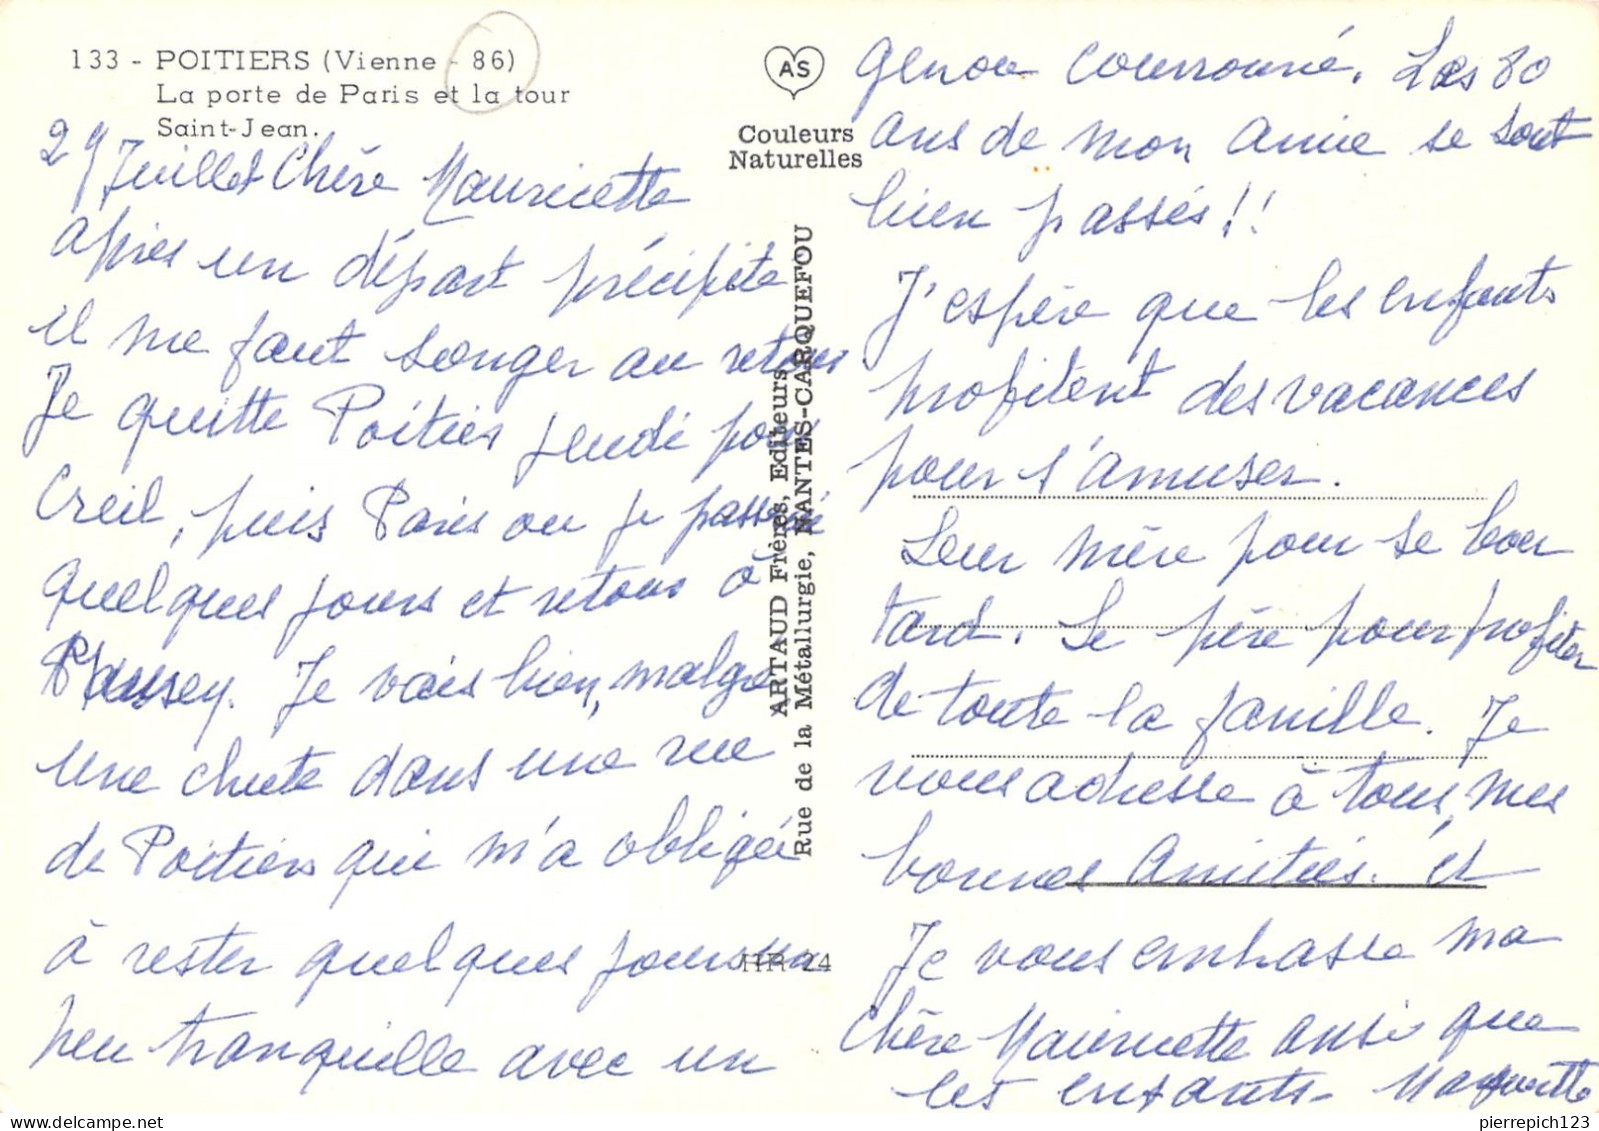 133 - POITIERS (Vienne - 86)
La porte de Paris et la tour
Saint-Jean.
29 Juillet Chère Mauricette
après un départ précipité
il me faut songer au retour
Je quitte Poitiers jeudi pour
Creil, puis Paris ou je passerai
quelques jours et retour à
Je vais bien, malgré
une chute dans une rue
de Poitiers qui m'a obligée
à rester quelques jours un
peu tranquille avec un
AS
Couleurs
Naturelles
ARTAUD Frères, Editeurs
Rue de la Métallurgie, NANTES-CARQUEFOU
HR 24
genou couronné. Les 80
ans de mon amie se sont
bien passés!!
J'espère que les enfants
profitent des vacances
pour s'amuser.
Leur mère pour se lever
tard. Le père pour profiter
de toute la famille. Je
vous adresse à tous, mes
bonnes Amitiés. et
Je vous embrasse ma
Chère Mauricette ansi que
les enfants - Marguerite
pierrepich123